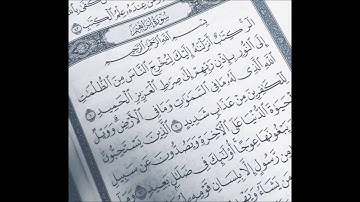 ومن عنده علم الكتب
سورة ابراهيم
بسم الله الرحمن الرحيم
الر كتب أنزلنه إليك لتخرج الناس من الظلمت
إلى النور بإذن ربهم إلى صرط العزيز الحميد ١
الله الذي له ما في السموت وما في الأرض وويل
للكفرين من عذاب شديد ٢ الذين يستحبون
الحيوة الدنيا على الآخرة ويصدون عن سبيل
ويبغونها عوجا أولئك في ضلل بعيد ٣ وما
من رسول إلا بلسان قومه
من يشاء ويهدى